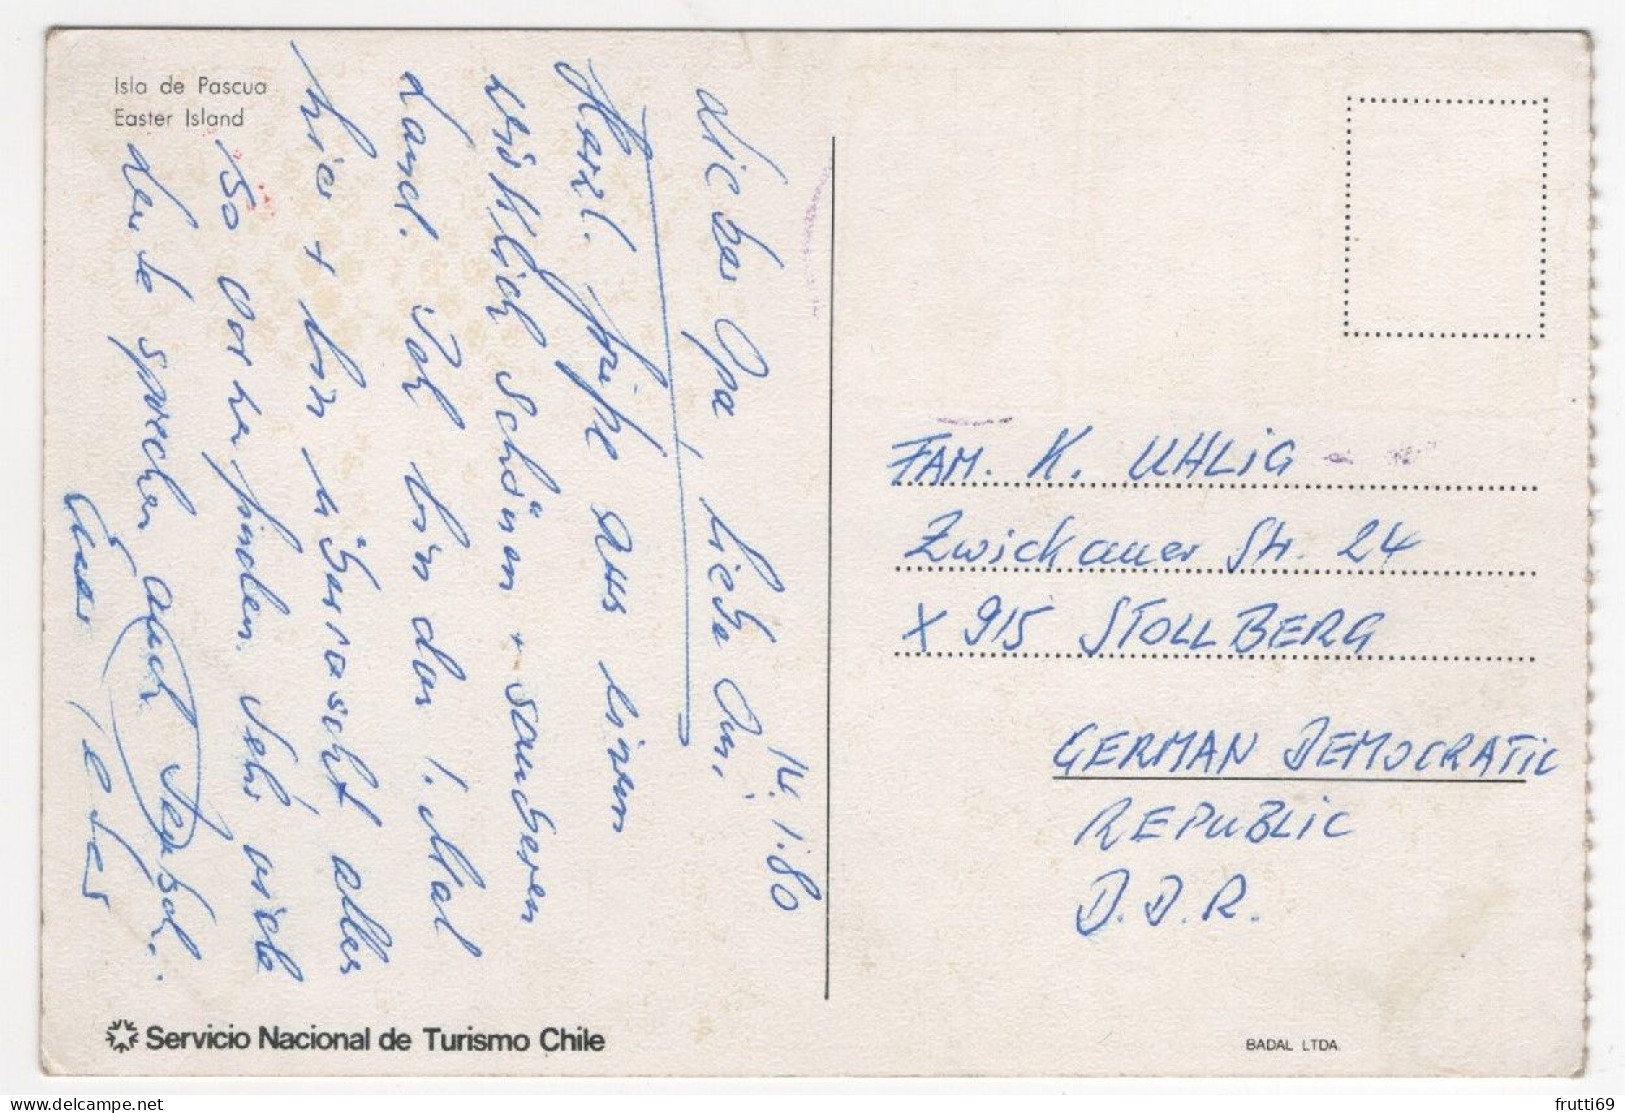 Isla de Pascua
Easter Island
14.1.80
Lieber Opa, liebe Omi,
Herzl. Grüße aus einem
wirklich schönen + sauberen
Land. Ich bin das 1. Mal
hier + bin überrascht alles
so vorzufinden. Sehr viele
Leute sprechen auch Deutsch.
Euer Peter
FAM. K. UHLIG
Zwickauer Str. 24
X 915 STOLLBERG
GERMAN DEMOCRATIC
REPUBLIC
D.D.R.
Servicio Nacional de Turismo Chile
BADAL LTDA.
frutti69
delcampe.net